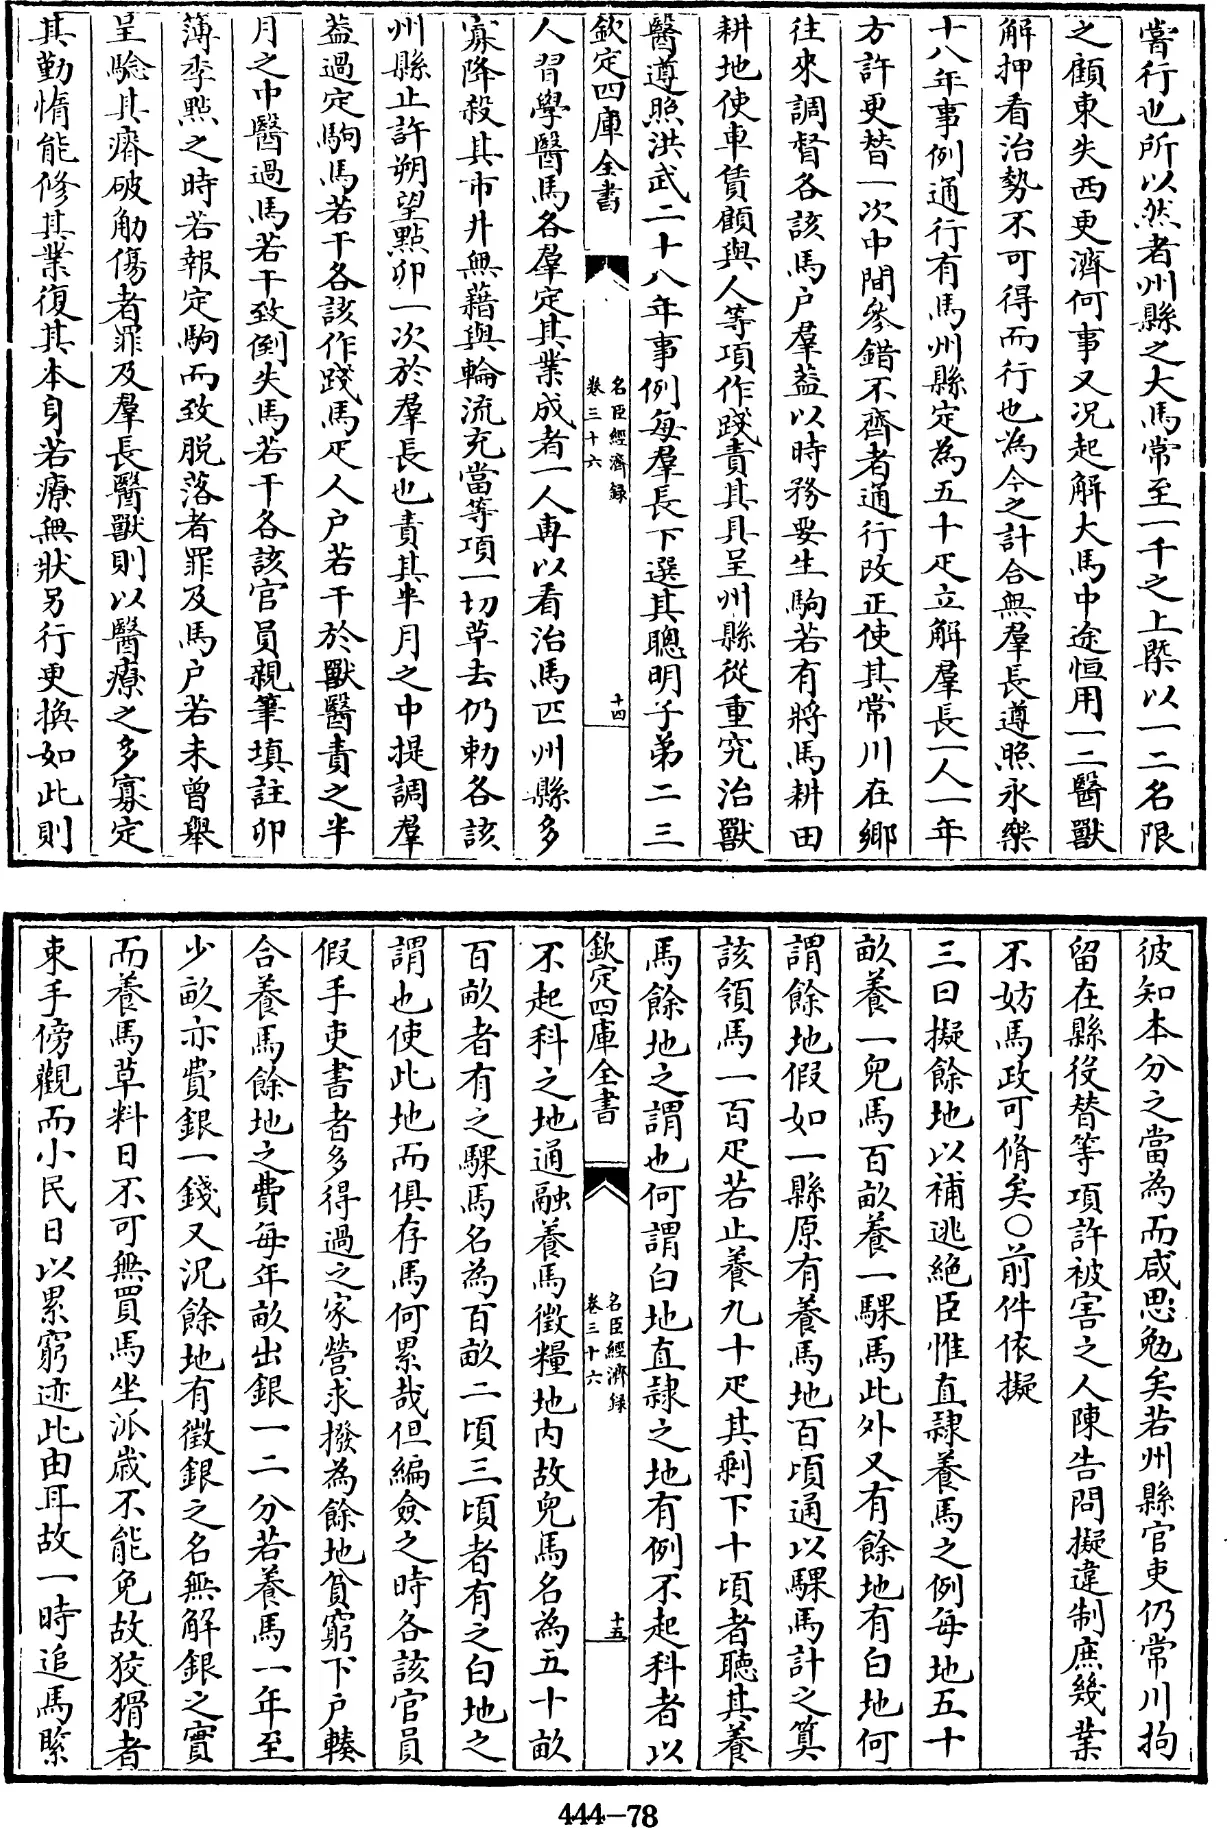 嘗行也所以然者州縣之大馬常至一千之上槩以一二名限
之顧東失西更濟何事又况起解大馬中途恒用一二醫獸
解押看治勢不可得而行也為今之計合無羣長遵照永樂
十八年事例通行有馬州縣定為五十疋立解羣長一人一年
方許更替一次中間參錯不齊者通行改正使其常川在鄉
往來調督各該馬户羣葢以時務要生駒若有將馬耕田
耕地使車賃顧與人等項作踐責其具呈州縣從重究治獸
醫遵照洪武二十八年事例每羣長下選其聰明子弟二三
欽定四庫全書
名臣經濟録
卷三十六
十四
人習學醫馬各羣定其業成者一人專以看治馬匹州縣多
寡降殺其市井無藉與輪流充當等項一切革去仍勅各該
州縣止許朔望點卯一次於羣長也責其半月之中提調羣
葢過定駒馬若干各該作踐馬疋人户若干於獸醫責之半
月之中醫過馬若干致倒失馬若干各該官員親筆填註卯
薄季點之時若報定駒而致脱落者罪及馬户若未曾舉
呈驗其瘠破觔傷者罪及羣長醫獸則以醫療之多寡定
其勤惰能修其業復其本身若療無狀另行更換如此則
彼知本分之當為而咸思勉矣若州縣官吏仍常川拘
留在縣役替等項許被害之人陳告問擬違制庶幾業
不妨馬政可脩矣○前件依擬
三曰擬餘地以補逃絶臣惟直隸養馬之例每地五十
畝養一兒馬百畝養一騍馬此外又有餘地有白地何
謂餘地假如一縣原有養馬地百頃通以騍馬計之箕
該領馬一百疋若止養九十疋其剩下十頃者聽其養
馬餘地之謂也何謂白地直隸之地有例不起科者以
欽定四庫全書
名臣經濟録
卷三十六
十五
不起科之地通融養馬徵糧地内故兒馬名為五十畝
百畝者有之騍馬名為百畝二頃三頃者有之白地之
謂也使此地而俱存馬何累哉但編僉之時各該官員
假手吏書者多得過之家營求撥為餘地貧窮下户輳
合養馬餘地之費每年畝出銀一二分若養馬一年至
少畝亦費銀一錢又况餘地有徵銀之名無解銀之實
而養馬草料日不可無買馬坐派歲不能免故狡猾者
束手傍觀而小民日以累窮迹此由耳故一時追馬緊
444–78